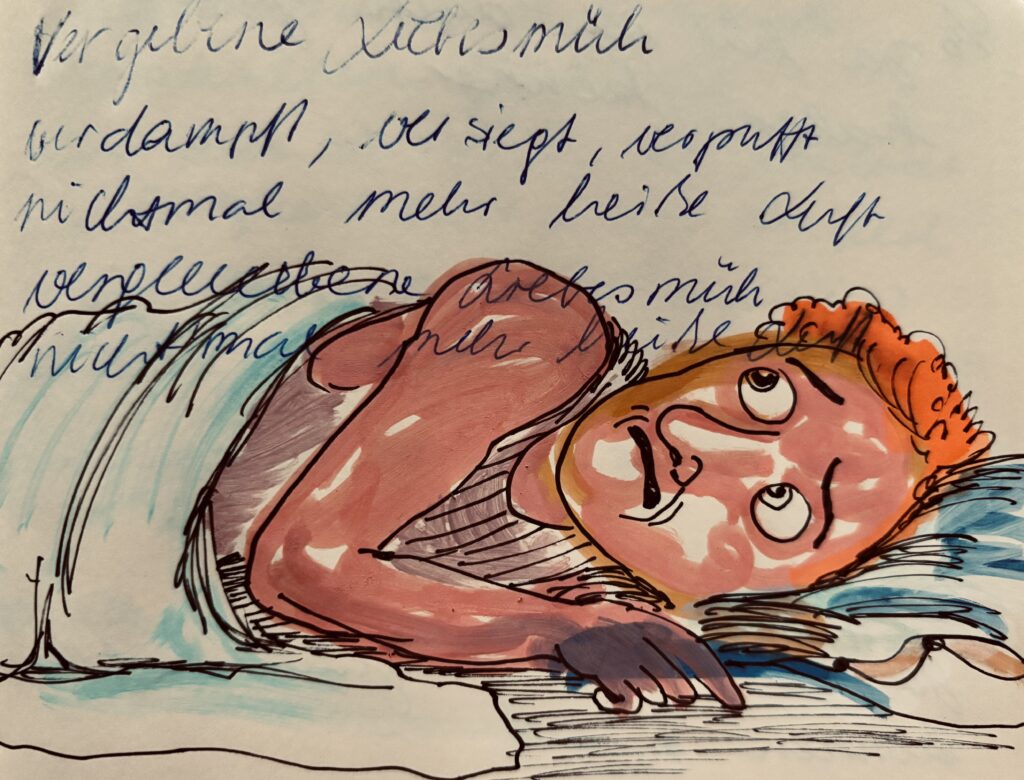 Vergebene Liebesmüh
verdampft, versiegt, verpufft
nichtmal mehr heiße Luft
vergebene Liebesmüh
nicht mal mehr heiße Luft